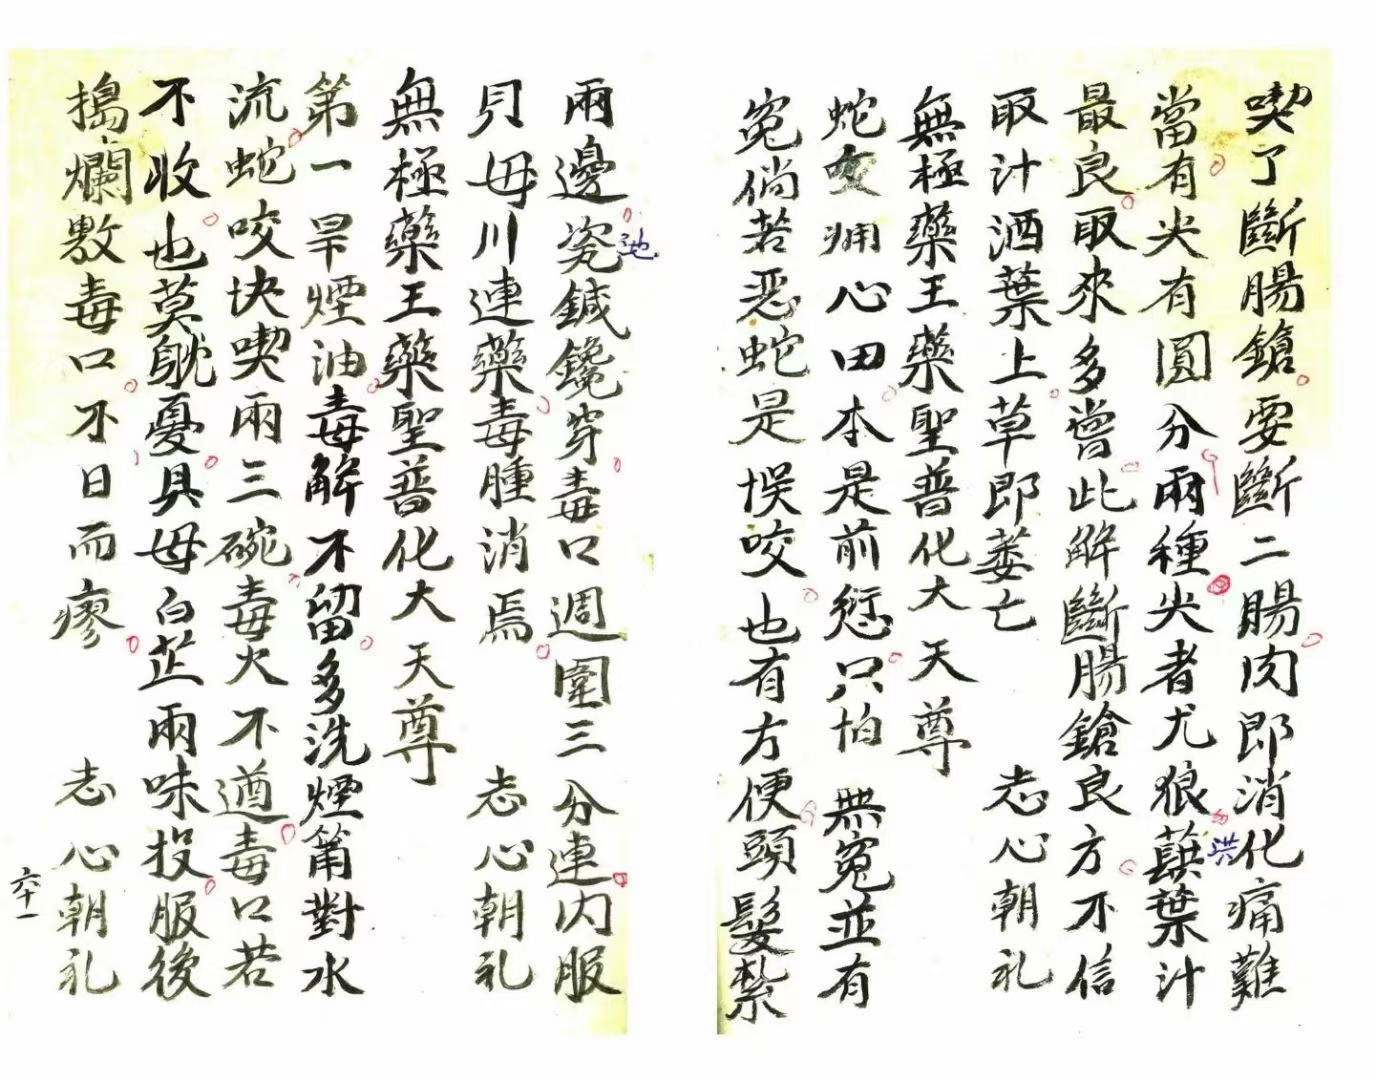 喫了斷腸鎗要斷二腸肉即消化痛難
當有尖有圓分兩種尖者尤狼蕻葉汁
洪
最良取來多嘗此解斷腸鎗良方不信
取汁洒葉上草即萎亡 志心朝礼
無極藥王藥聖普化大天尊
蛇女痈心田本是前愆只怕無冤並有
冤倘若恶蛇是悞咬也有方便頭髮紮
兩邊瓷鍼鑱穿毒口週圍三分連内服
池
貝母川連藥毒腫消焉 志心朝礼
無極藥王藥聖普化大天尊
第一旱煙油毒解不留多洗煙筩對水
流蛇咬块喫兩三碗毒火不遒毒口若
不收也莫躭憂具母白芷兩味投服後
搗爛敷毒口不日而瘳 志心朝礼
六十一